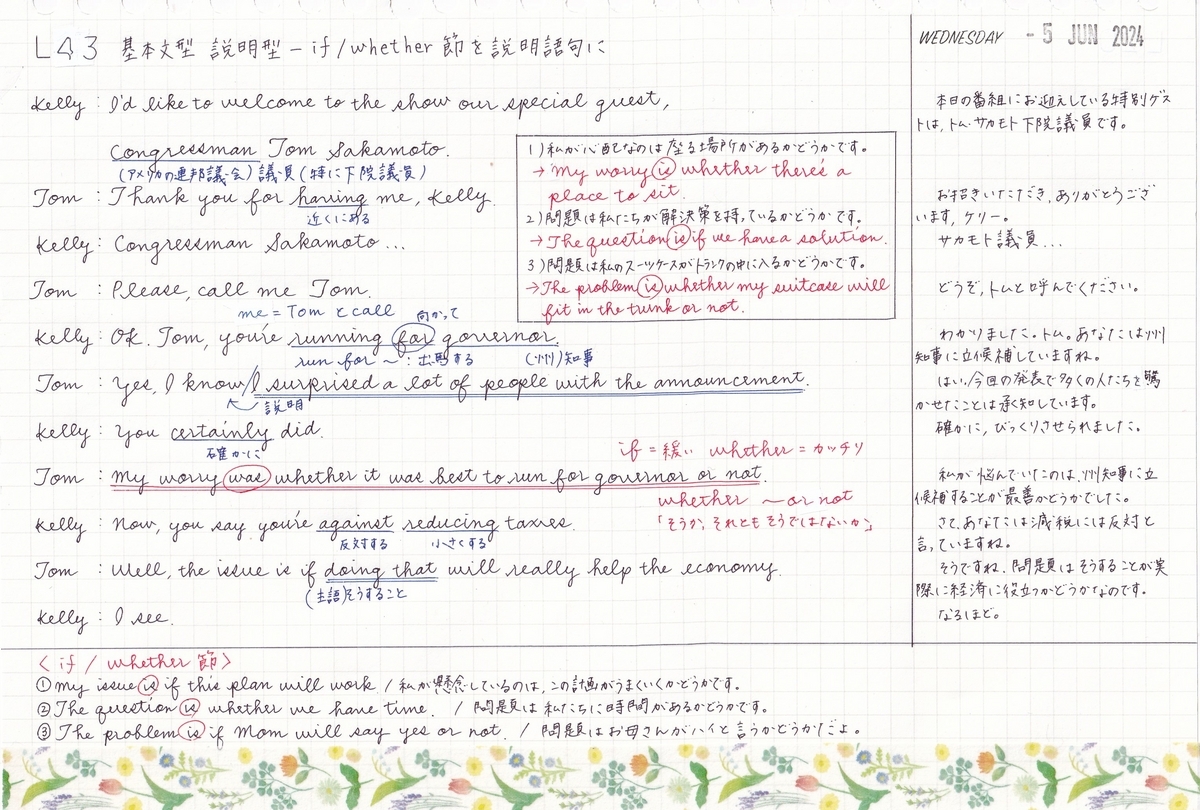 L43 基本文型 説明型 - if/whether 節を説明語句に
WEDNESDAY - 5 JUN 2024
Kelly : I'd like to welcome to the show our special guest,
congressman Tom Sakamoto.
(アメリカの連邦議会)議員(特に下院議員)
Tom : Thank you for having me, Kelly.
近くにある
Kelly : Congressman Sakamoto...
Tom : Please, call me Tom.
me = Tom と call 向かって
Kelly : OK. Tom, you're running for governor.
run for ~ : 出馬する (州)知事
Tom : Yes, I know/I surprised a lot of people with the announcement.
説明
Kelly : You certainly did.
確かに
if = 緩い whether = カッチリ
Tom : My worry was whether it was best to run for governor or not.
whether ~ or not
「そうか、それともそうではないか」
Kelly : Now, you say you're against reducing taxes.
反対する 小さくする
Tom : Well, the issue is if doing that will really help the economy.
(主語)そうすること
Kelly : I see.
1)私が心配なのは座る場所があるかどうかです。
→ My worry is whether there's a
place to sit.
2)問題は私たちが解決策を持っているかどうかです。
→ The question is if we have a solution.
3)問題は私のスーツケースがトランクの中に入るかどうかです。
→ The problem is whether my suitcase will
fit in the trunk or not.
本日の番組にお迎えしている特別ゲス
トは、トム・サカモト下院議員です。
お招きいただき、ありがとうござ
います、ケリー。
サカモト議員...
どうぞ、トムと呼んでください。
わかりました。トム。あなたは州
知事に立候補していますね。
はい、今回の発表で多くの人たちを驚
かせたことは承知しています。
確かに、びっくりさせられました。
私が悩んでいたのは、州知事に立
候補することが最善かどうかでした。
さて、あなたは減税には反対と
言っていますね。
そうですね、問題はそうすることが実
際に経済に役立つかどうかなのです。
なるほど。
〈 if / whether 節〉
① my issue is if this plan will work / 私が懸念しているのは、この計画がうまくいくかどうかです。
② The question is whether we have time. / 問題は私たちに時間があるかどうかです。
③ The problem is if Mom will say yes or not. / 問題はお母さんがハイと言うかどうかだよ。